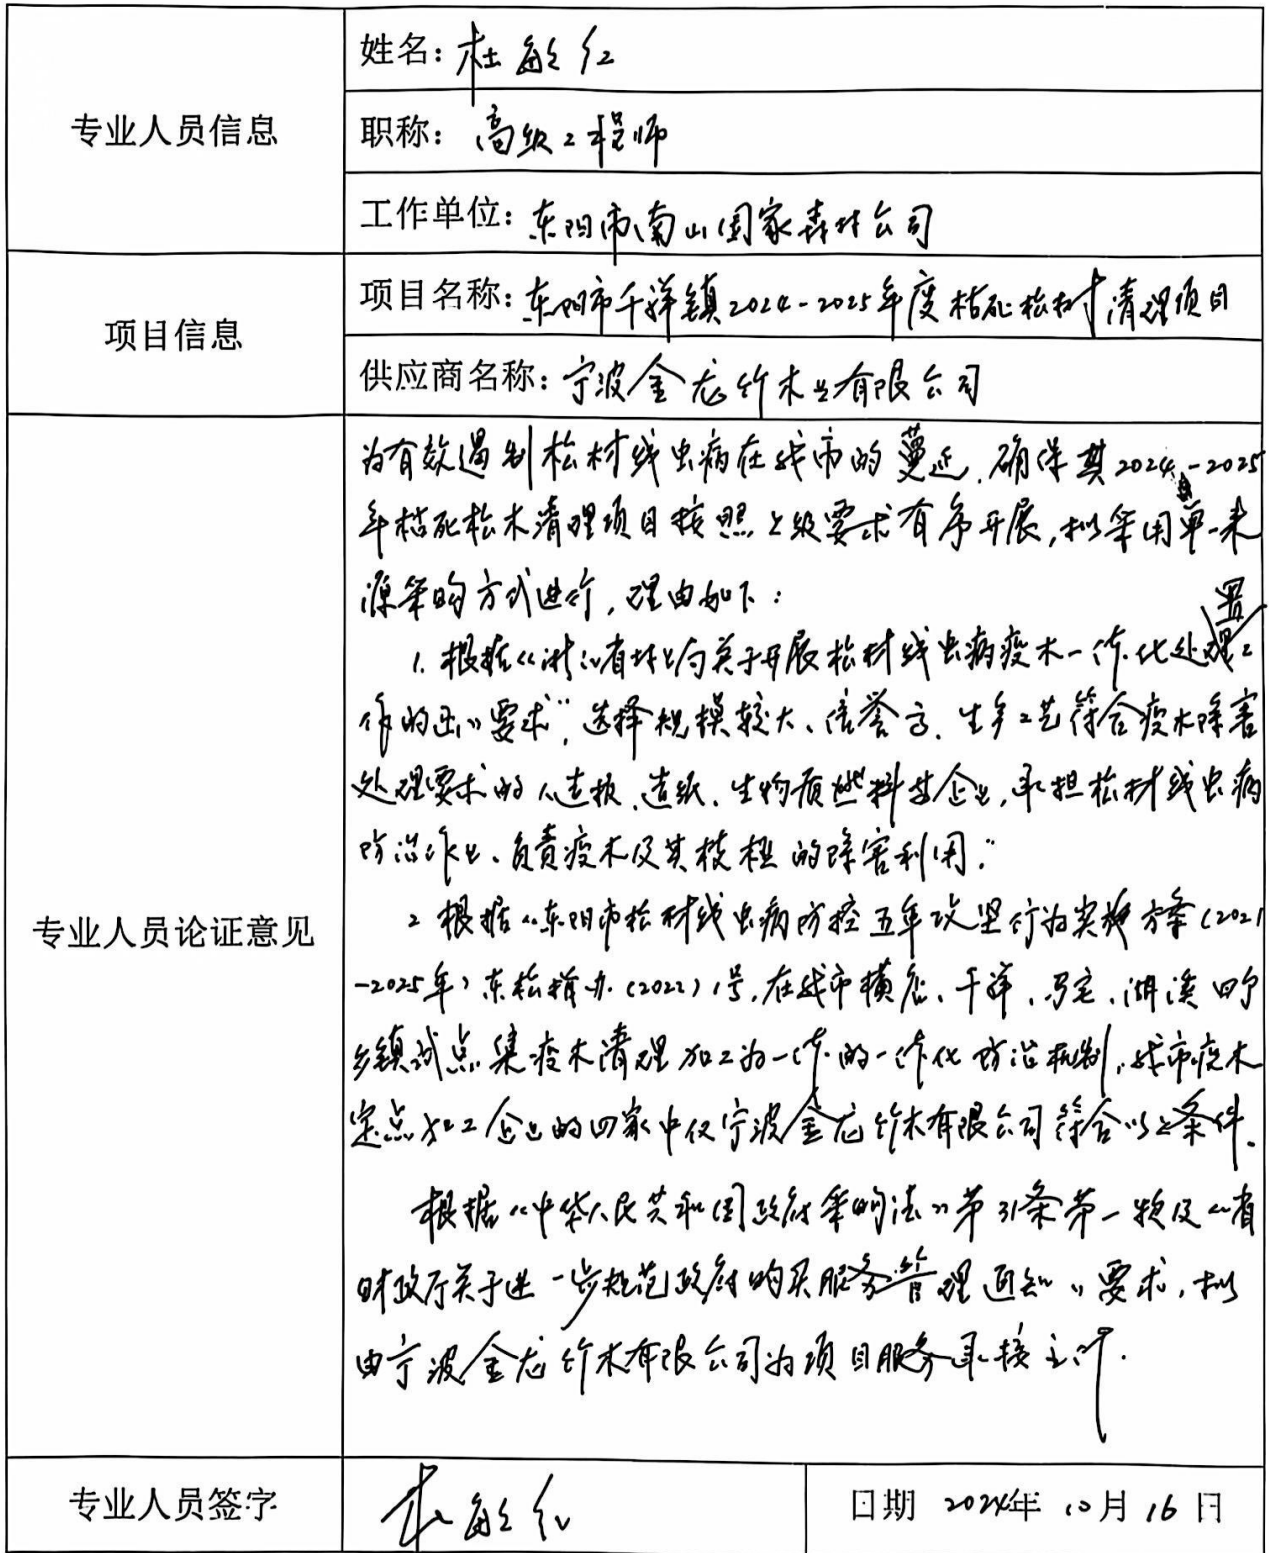 专业人员信息
姓名：杜敏红
职称：高级工程师
工作单位：东阳市南山国家森林公司
项目信息
项目名称：东阳市千祥镇2024-2025年度枯死松树清理项目
供应商名称：宁波金龙竹木业有限公司
专业人员论证意见
为有效遏制松材线虫病在我市的蔓延，确保其2024-2025
年枯死松木清理项目按照上级要求有序开展，拟采用单一来
源采购方式进行，理由如下：
1. 根据《浙江省林业局关于开展松材线虫病疫木一体化处置工
作的》要求"选择规模较大、信誉高、生产工艺符合疫木除害
处理要求的人造板、造纸、生物质燃料等企业，承担松材线虫病
防治作业、负责疫木及其枝桠的除害利用。"
2 根据《东阳市松材线虫病防控五年攻坚行动实施方案（2021
-2025年）东松指办（2022）1号，在我市横店、千祥、马宅、湖溪四个
乡镇试点集疫木清理加工为一体的一体化防治机制，我市疫木
定点加工企业的四家中仅宁波金龙竹木有限公司符合以上条件。
根据《中华人民共和国政府采购法》第31条第一款及《省
财政厅关于进一步规范政府购买服务管理通知》要求，拟
由宁波金龙竹木有限公司为项目服务承接主体。
专业人员签字
杜敏红
日期 2024年10月16日